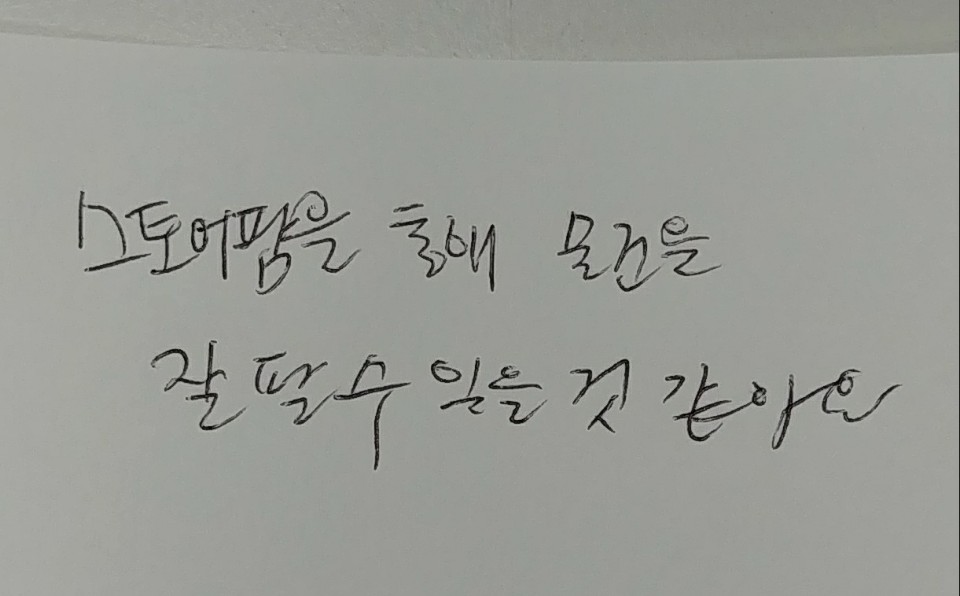 스토어팜을 통해 물건을
잘 팔 수 있을 것 같아요